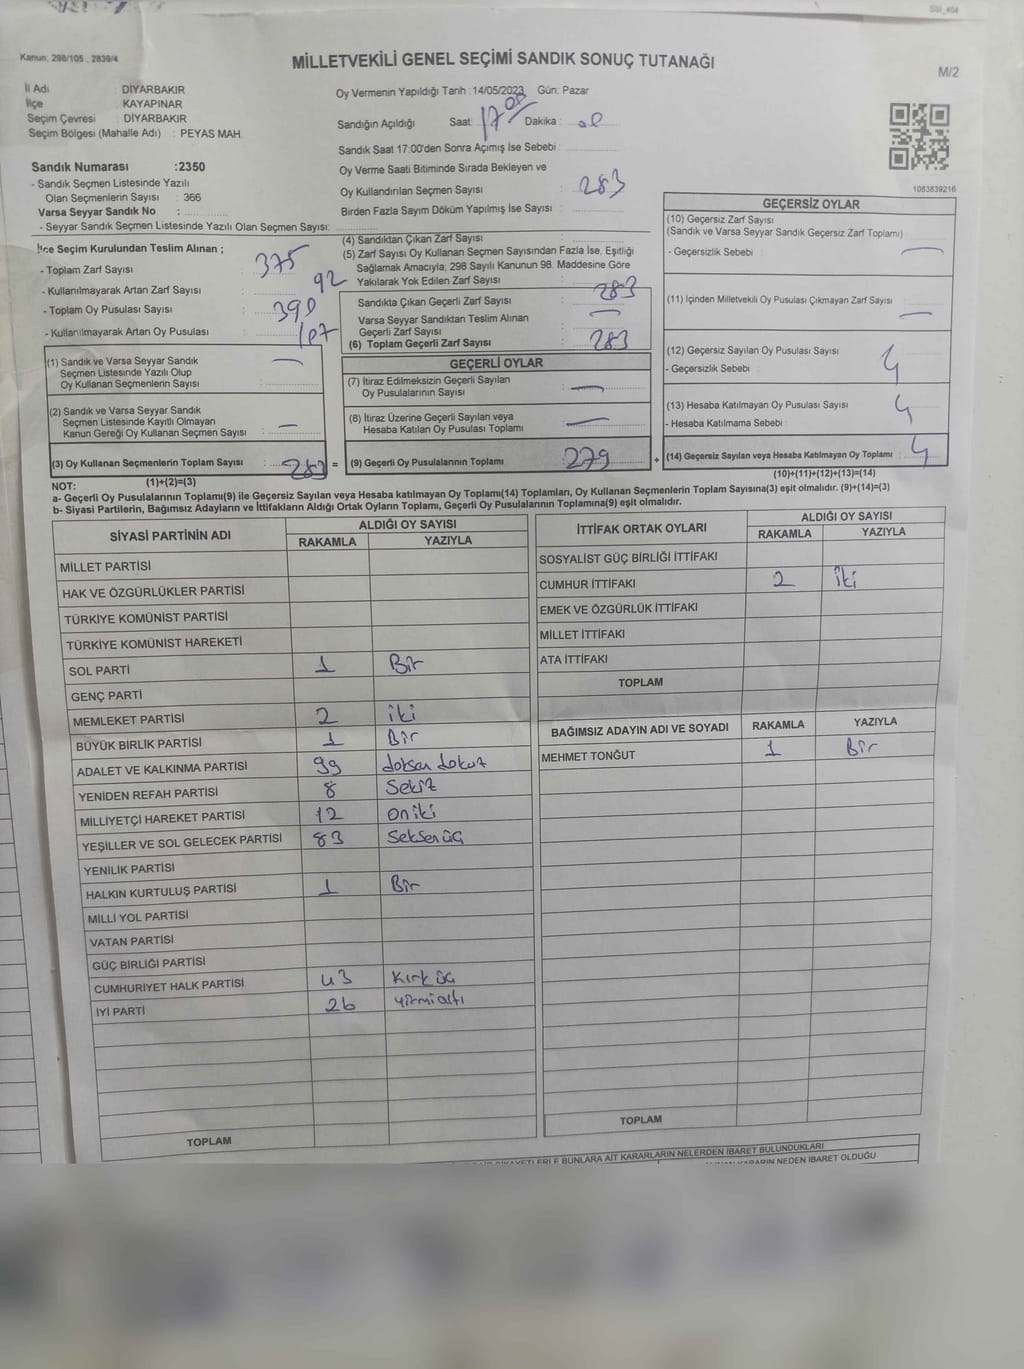 Kanun: 298/105 , 2839/4
MİLLETVEKİLİ GENEL SEÇİMİ SANDIK SONUÇ TUTANAĞI
M/2
İl Adı : DİYARBAKIR
İlçe : KAYAPINAR
Seçim Çevresi : DİYARBAKIR
Seçim Bölgesi (Mahalle Adı) : PEYAS MAH.
Oy Vermenin Yapıldığı Tarih :14/05/2023 Gün: Pazar
Sandığın Açıldığı Saat: 17 Dakika:
Sandık Saat 17:00'den Sonra Açımış İse Sebebi :
Oy Verme Saati Bitiminde Sırada Bekleyen ve
Oy Kullandırılan Seçmen Sayısı : 283
Birden Fazla Sayım Döküm Yapılmış İse Sayısı :
Sandık Numarası :2350
- Sandık Seçmen Listesinde Yazılı
Olan Seçmenlerin Sayısı : 366
Varsa Seyyar Sandık No :
- Seyyar Sandık Seçmen Listesinde Yazılı Olan Seçmen Sayısı:
1063839216
İlçe Seçim Kurulundan Teslim Alınan ;
- Toplam Zarf Sayısı : 375
- Kullanılmayarak Artan Zarf Sayısı : 92
- Toplam Oy Pusulası Sayısı : 390
- Kullanılmayarak Artan Oy Pusulası : 107
(1) Sandık ve Varsa Seyyar Sandık
Seçmen Listesinde Yazılı Olup
Oy Kullanan Seçmenlerin Sayısı : —
(2) Sandık ve Varsa Seyyar Sandık
Seçmen Listesinde Kayıtlı Olmayan
Kanun Gereği Oy Kullanan Seçmen Sayısı : —
(3) Oy Kullanan Seçmenlerin Toplam Sayısı : 283 =
(1)+(2)=(3)
(4) Sandıktan Çıkan Zarf Sayısı :
(5) Zarf Sayısı Oy Kullanan Seçmen Sayısından Fazla İse, Eşitliği
Sağlamak Amacıyla, 298 Sayılı Kanunun 98. Maddesine Göre
Yakılarak Yok Edilen Zarf Sayısı :
Sandıkta Çıkan Geçerli Zarf Sayısı : 283
Varsa Seyyar Sandıktan Teslim Alınan
Geçerli Zarf Sayısı : —
(6) Toplam Geçerli Zarf Sayısı : 283
GEÇERLİ OYLAR
(7) İtiraz Edilmeksizin Geçerli Sayılan
Oy Pusulalarının Sayısı : —
(8) İtiraz Üzerine Geçerli Sayılan veya
Hesaba Katılan Oy Pusulası Toplamı : —
(9) Geçerli Oy Pusulalarının Toplamı : 279 +
GEÇERSİZ OYLAR
(10) Geçersiz Zarf Sayısı
(Sandık ve Varsa Seyyar Sandık Geçersiz Zarf Toplamı) :
- Geçersizlik Sebebi : —
(11) İçinden Milletvekili Oy Pusulası Çıkmayan Zarf Sayısı : —
(12) Geçersiz Sayılan Oy Pusulası Sayısı : 4
- Geçersizlik Sebebi :
(13) Hesaba Katılmayan Oy Pusulası Sayısı : 4
- Hesaba Katılmama Sebebi :
(14) Geçersiz Sayılan veya Hesaba Katılmayan Oy Toplamı : 4
(10)+(11)+(12)+(13)=(14)
NOT:
a- Geçerli Oy Pusulalarının Toplamı(9) ile Geçersiz Sayılan veya Hesaba katılmayan Oy Toplamı(14) Toplamları, Oy Kullanan Seçmenlerin Toplam Sayısına(3) eşit olmalıdır. (9)+(14)=(3)
b- Siyasi Partilerin, Bağımsız Adayların ve İttifakların Aldığı Ortak Oyların Toplamı, Geçerli Oy Pusulalarının Toplamına(9) eşit olmalıdır.
SİYASİ PARTİNİN ADI
ALDIĞI OY SAYISI
RAKAMLA YAZIYLA
MİLLET PARTİSİ
HAK VE ÖZGÜRLÜKLER PARTİSİ
TÜRKİYE KOMÜNİST PARTİSİ
TÜRKİYE KOMÜNİST HAREKETİ
SOL PARTİ 1 Bir
GENÇ PARTİ
MEMLEKET PARTİSİ 2 iki
BÜYÜK BİRLİK PARTİSİ 1 Bir
ADALET VE KALKINMA PARTİSİ 99 doksan dokuz
YENİDEN REFAH PARTİSİ 8 Sekiz
MİLLİYETÇİ HAREKET PARTİSİ 12 oniki
YEŞİLLER VE SOL GELECEK PARTİSİ 83 Seksenüç
YENİLİK PARTİSİ
HALKIN KURTULUŞ PARTİSİ 1 Bir
MİLLİ YOL PARTİSİ
VATAN PARTİSİ
GÜÇ BİRLİĞİ PARTİSİ
CUMHURİYET HALK PARTİSİ 43 Kırk üç
İYİ PARTİ 26 yirmialtı
TOPLAM
İTTİFAK ORTAK OYLARI
ALDIĞI OY SAYISI
RAKAMLA YAZIYLA
SOSYALİST GÜÇ BİRLİĞİ İTTİFAKI
CUMHUR İTTİFAKI 2 iki
EMEK VE ÖZGÜRLÜK İTTİFAKI
MİLLET İTTİFAKI
ATA İTTİFAKI
TOPLAM
BAĞIMSIZ ADAYIN ADI VE SOYADI RAKAMLA YAZIYLA
MEHMET TONĞUT 1 Bir
TOPLAM
BUNLARA AİT KARARLARIN NELERDEN İBARET BULUNDUKLARI
KARARIN NEDEN İBARET OLDUĞU